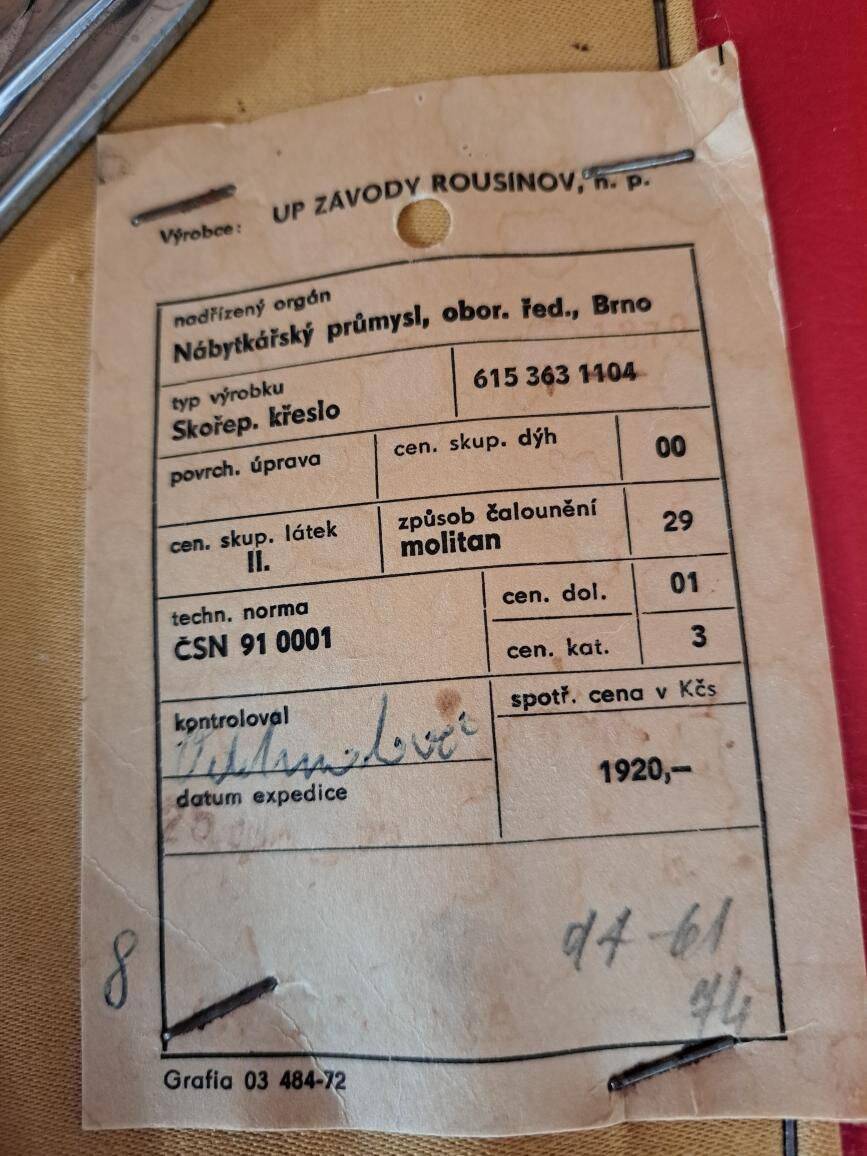 Výrobce: UP ZÁVODY ROUSÍNOV, n. p.
nadřízený orgán
Nábytkářský průmysl, obor. řed., Brno
typ výrobku
Skořep. křeslo
615 363 1104
povrch. úprava
cen. skup. dýh
00
cen. skup. látek
II.
způsob čalounění
molitan
29
techn. norma
ČSN 91 0001
cen. dol.
01
cen. kat.
3
kontroloval
spotř. cena v Kčs
1920,—
datum expedice
8
74
Grafia 03 484-72